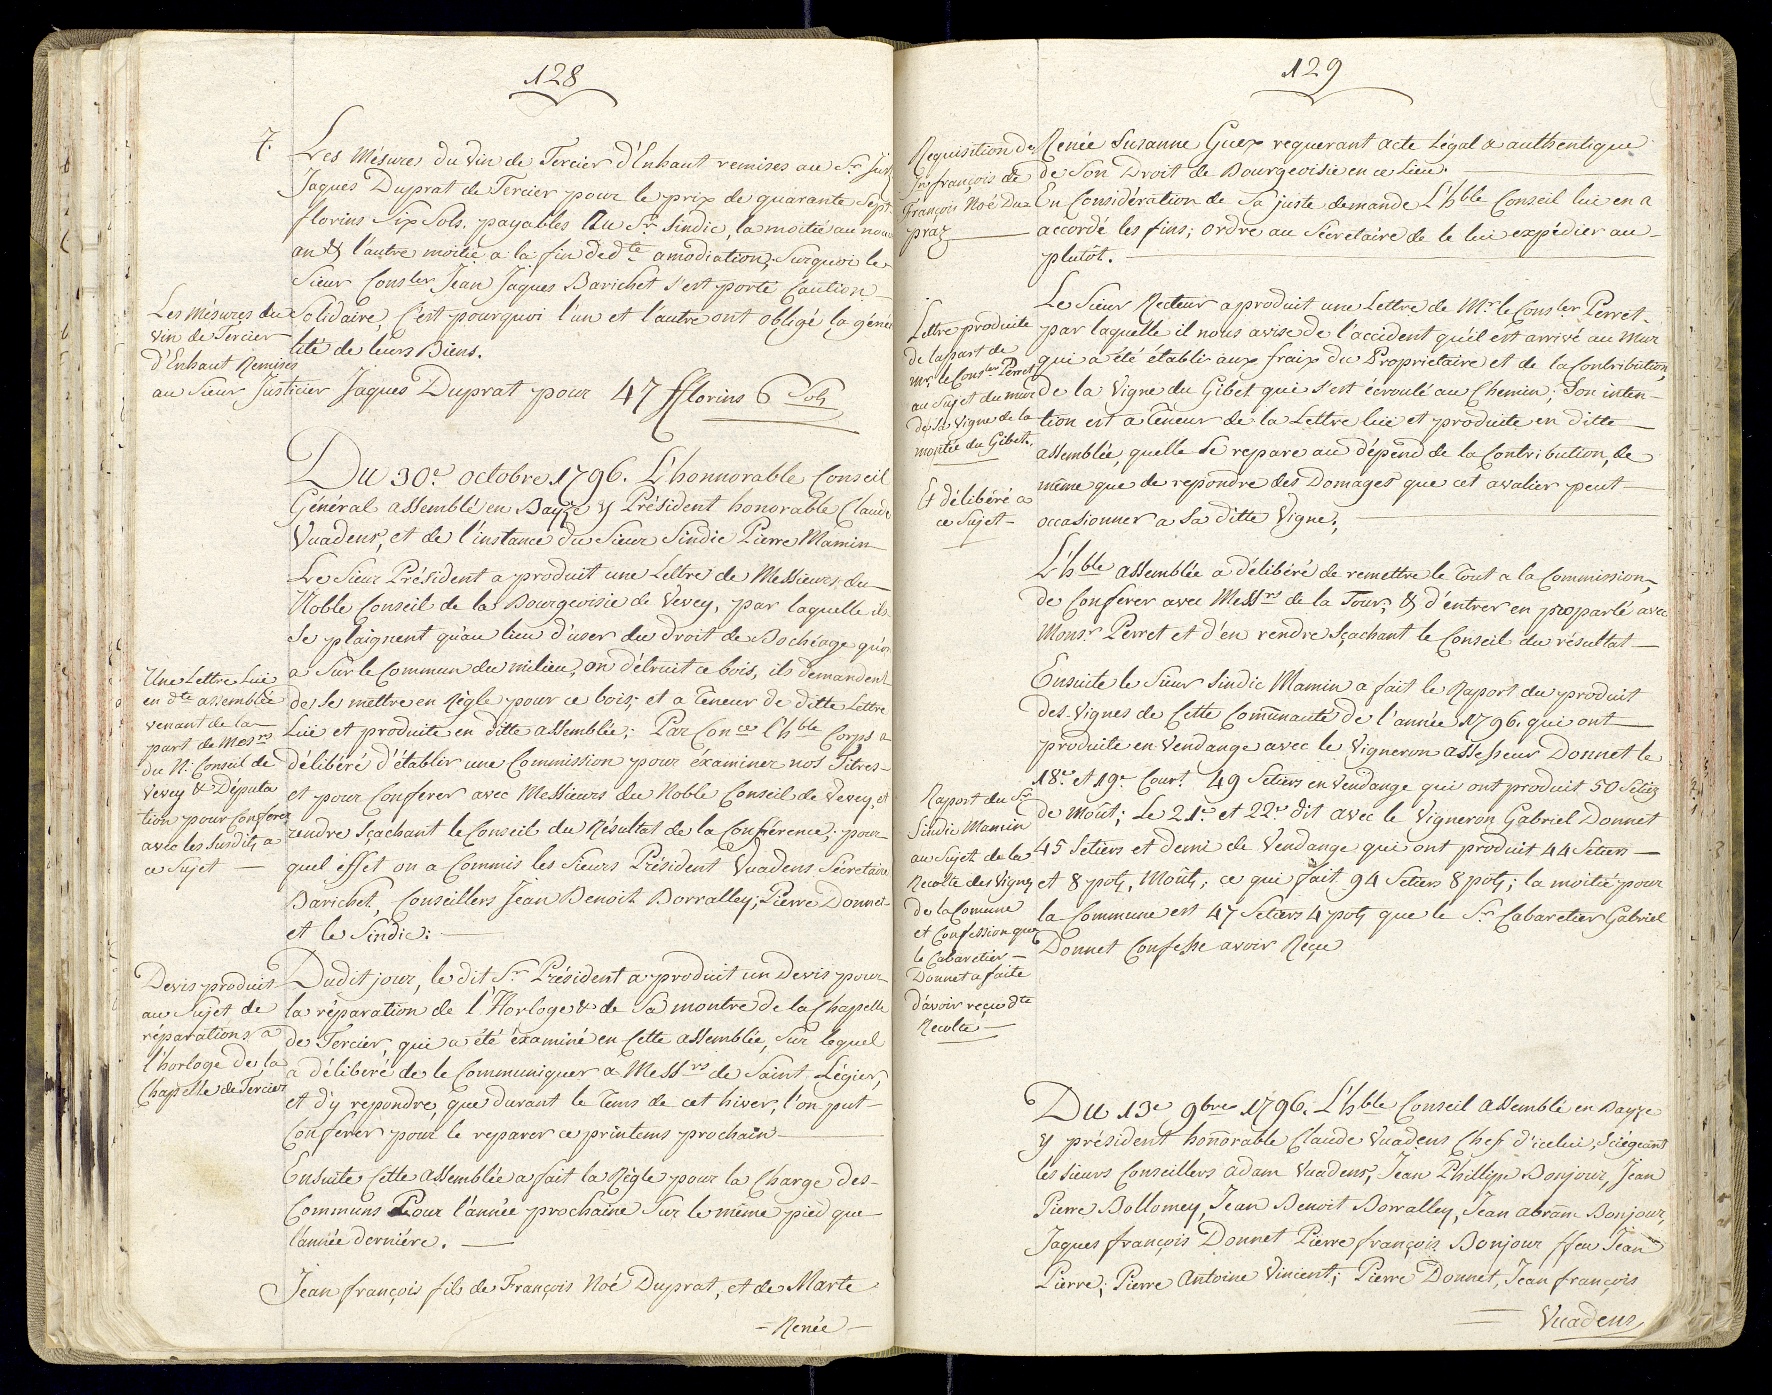 128
7. Les Mésures du Vin de Tercier d'Enhaut remises au Sr. Just
Jaques Duprat de Tercier pour le prix de quarante Sept
florins Six Sols, payables Au Sr. Sindic, la moitié au nou
an & l'autre moitié a la fin de dte amodiation, Surquoi le
Sieur Conser Jean Jaques Barichet s'est porté Caution
Solidaire, C'est pourquoi l'un et l'autre ont obligé la géné
lité de leurs Biens.
Les Mésures du
Vin de Tercier
d'Enhaut Remises
au Sieur Justicier Jaques Duprat pour 47 fflorins 6 Sols
Du 30e. octobre 1796. L'honnorable Conseil
Général assemblé en Bayze y Président honorable Claude
Vuadens, et de l'instance du Sieur Sindic Pierre Mamin
Le Sieur Président a produit une Lettre de Messieurs du
Noble Conseil de la Bourgeoisie de Vevey, par laquelle ils
Se plaignent qu'au lieu d'user du droit de Bochéage qu'on
a Sur le Commun du milieu, on détruit ce bois, ils demandent
de Se mettre en Règle pour ce bois, et a Teneur de ditte Lettre
Lüe et produite en ditte assemblée; Par Conce l'hble Corps a
délibéré d'établir une Commission pour éxaminer nos Titres
et pour Conferer avec Messieurs du Noble Conseil de Vevey, et
rendre Sçachant le Conseil du Résultat de la Conférence; pour
quel effet on a Commis les Sieurs Président Vuadens Sécretaire
Barichet, Conseillers Jean Benoit Borralley, Pierre Donnet
et le Sindic.
Une Lettre Lüe
en dte assemblée
venant de la
part de Mesrs
du N: Conseil de
Vevey & Députa
tion pour Conferer
avec les Susdits a
ce Sujet
Dudit jour, le dit Sr. Président a produit un Devis pour
la réparation de l'Horloge & de Sa montre de la Chapelle
de Tercier, qui a été éxaminé en Cette assemblée, Sur lequel
a délibéré de le Communiquer a Messrs de Saint Légier,
et d'y repondre, que durant le Tems de cet hiver, l'on put
Conferer pour le reparer ce printems prochain
Devis produit
au Sujet de
réparations a
l'horloge de la
Chapelle de Tercier
Ensuite Cette assemblée a fait la Règle pour la Charge des
Communs Pour l'année prochaine Sur le même pied que
l'année derniére.
Jean françois fils de François Noé Duprat, et de Marte
Renée
129
Renée Susanne Guex requerant acte Légal & authentique
de Son Droit de Bourgeoisie en ce Lieu.
En Considération de Sa juste demande L'hble Conseil lui en a
accordé les fins; ordre au Sécretaire de le lui expédier au
plutôt.
Requisition de
Jn françois de
François Noé Du
praz
Le Sieur Recteur a produit une Lettre de Mr. le Conser Perret
par laquelle il nous avise de l'accident qu'il est arrivé au Mur
qui a été établi aux fraix du Proprietaire et de la Contribution,
de la Vigne du Gibet qui s'est écroulé au Chemin; Son inten-
tion est a Teneur de la Lettre lüe et produite en ditte
assemblée, quelle Se repare au dépend de la Contribution, de
même que de repondre des Domages que cet avalier peut
occasionner a Sa ditte Vigne;
Lettre produite
de la part de
Mr. le Conser Perret
au Sujet du mur
de Sa Vigne de la
montée du Gibet.
Et délibéré a
ce Sujet
L'hble assemblée a délibéré de remettre le Tout a la Commission,
de Conferer avec Messrs de la Tour, & d'entrer en poparlé avec
Monsr Perret et d'en rendre Sçachant le Conseil du résultat
Ensuite le Sieur Sindic Mamin a fait le Raport du produit
des Vignes de Cette Communauté de l'année 1796. qui ont
produite en Vendange avec le Vigneron assesseur Donnet le
18e. et 19e. Court 49 Setiers en Vendange qui ont produit 50 Setiers
de Moût; Le 21e et 22e dit avec le Vigneron Gabriel Donnet
45 Setiers et demi de Vendange qui ont produit 44 Setiers
et 8 pots, Moût; ce qui fait 94 Setiers 8 pots; la moitié pour
la Commune est 47 Setiers 4 pots que le Sr. Cabaretier Gabriel
Donnet Confesse avoir Reçu
Raport du Sr.
Sindic Mamin
au Sujet de la
Recolte des Vignes
de la Comune
et Confession que
le Cabaretier
Donnet a faite
d'avoir reçu dte
Recolte
Du 13e 9bre 1796. L'hble Conseil assemblé en Bayze
y président honnorable Claude Vuadens Chef d'icelui, Sciégeant
les Sieurs Conseillers adam Vuadens, Jean Phillipe Bonjour, Jean
Pierre Bollomey, Jean Benoit Borralley, Jean abram Bonjour,
Jaques françois Donnet Pierre françois Bonjour ffeu Jean
Pierre; Pierre Antoine Vincent; Pierre Donnet, Jean françois
Vuadens